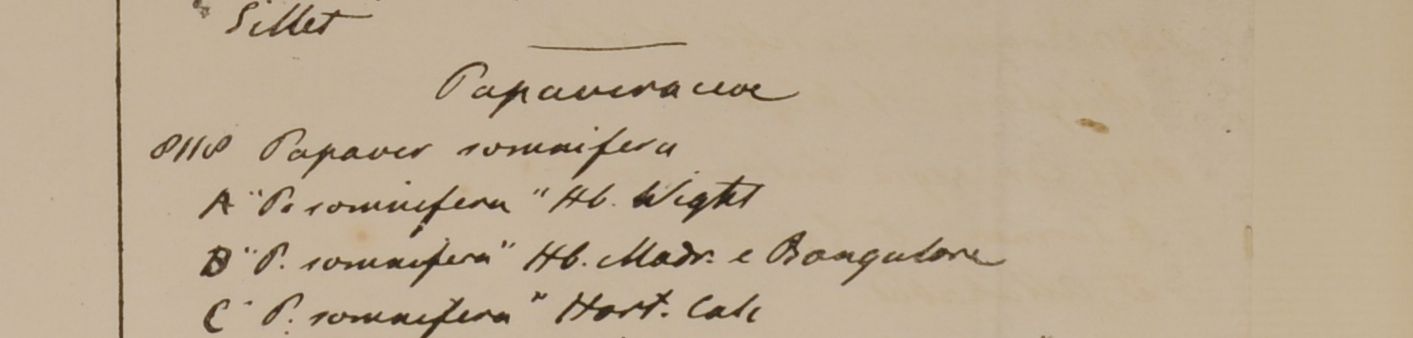 Sillet
Papaveraceae
8118 Papaver somnifera
A "P. somnifera" Hb. Wight
B "P. somnifera" Hb. Madr. e Bangalore
C "P. somnifera" Hort. Calc